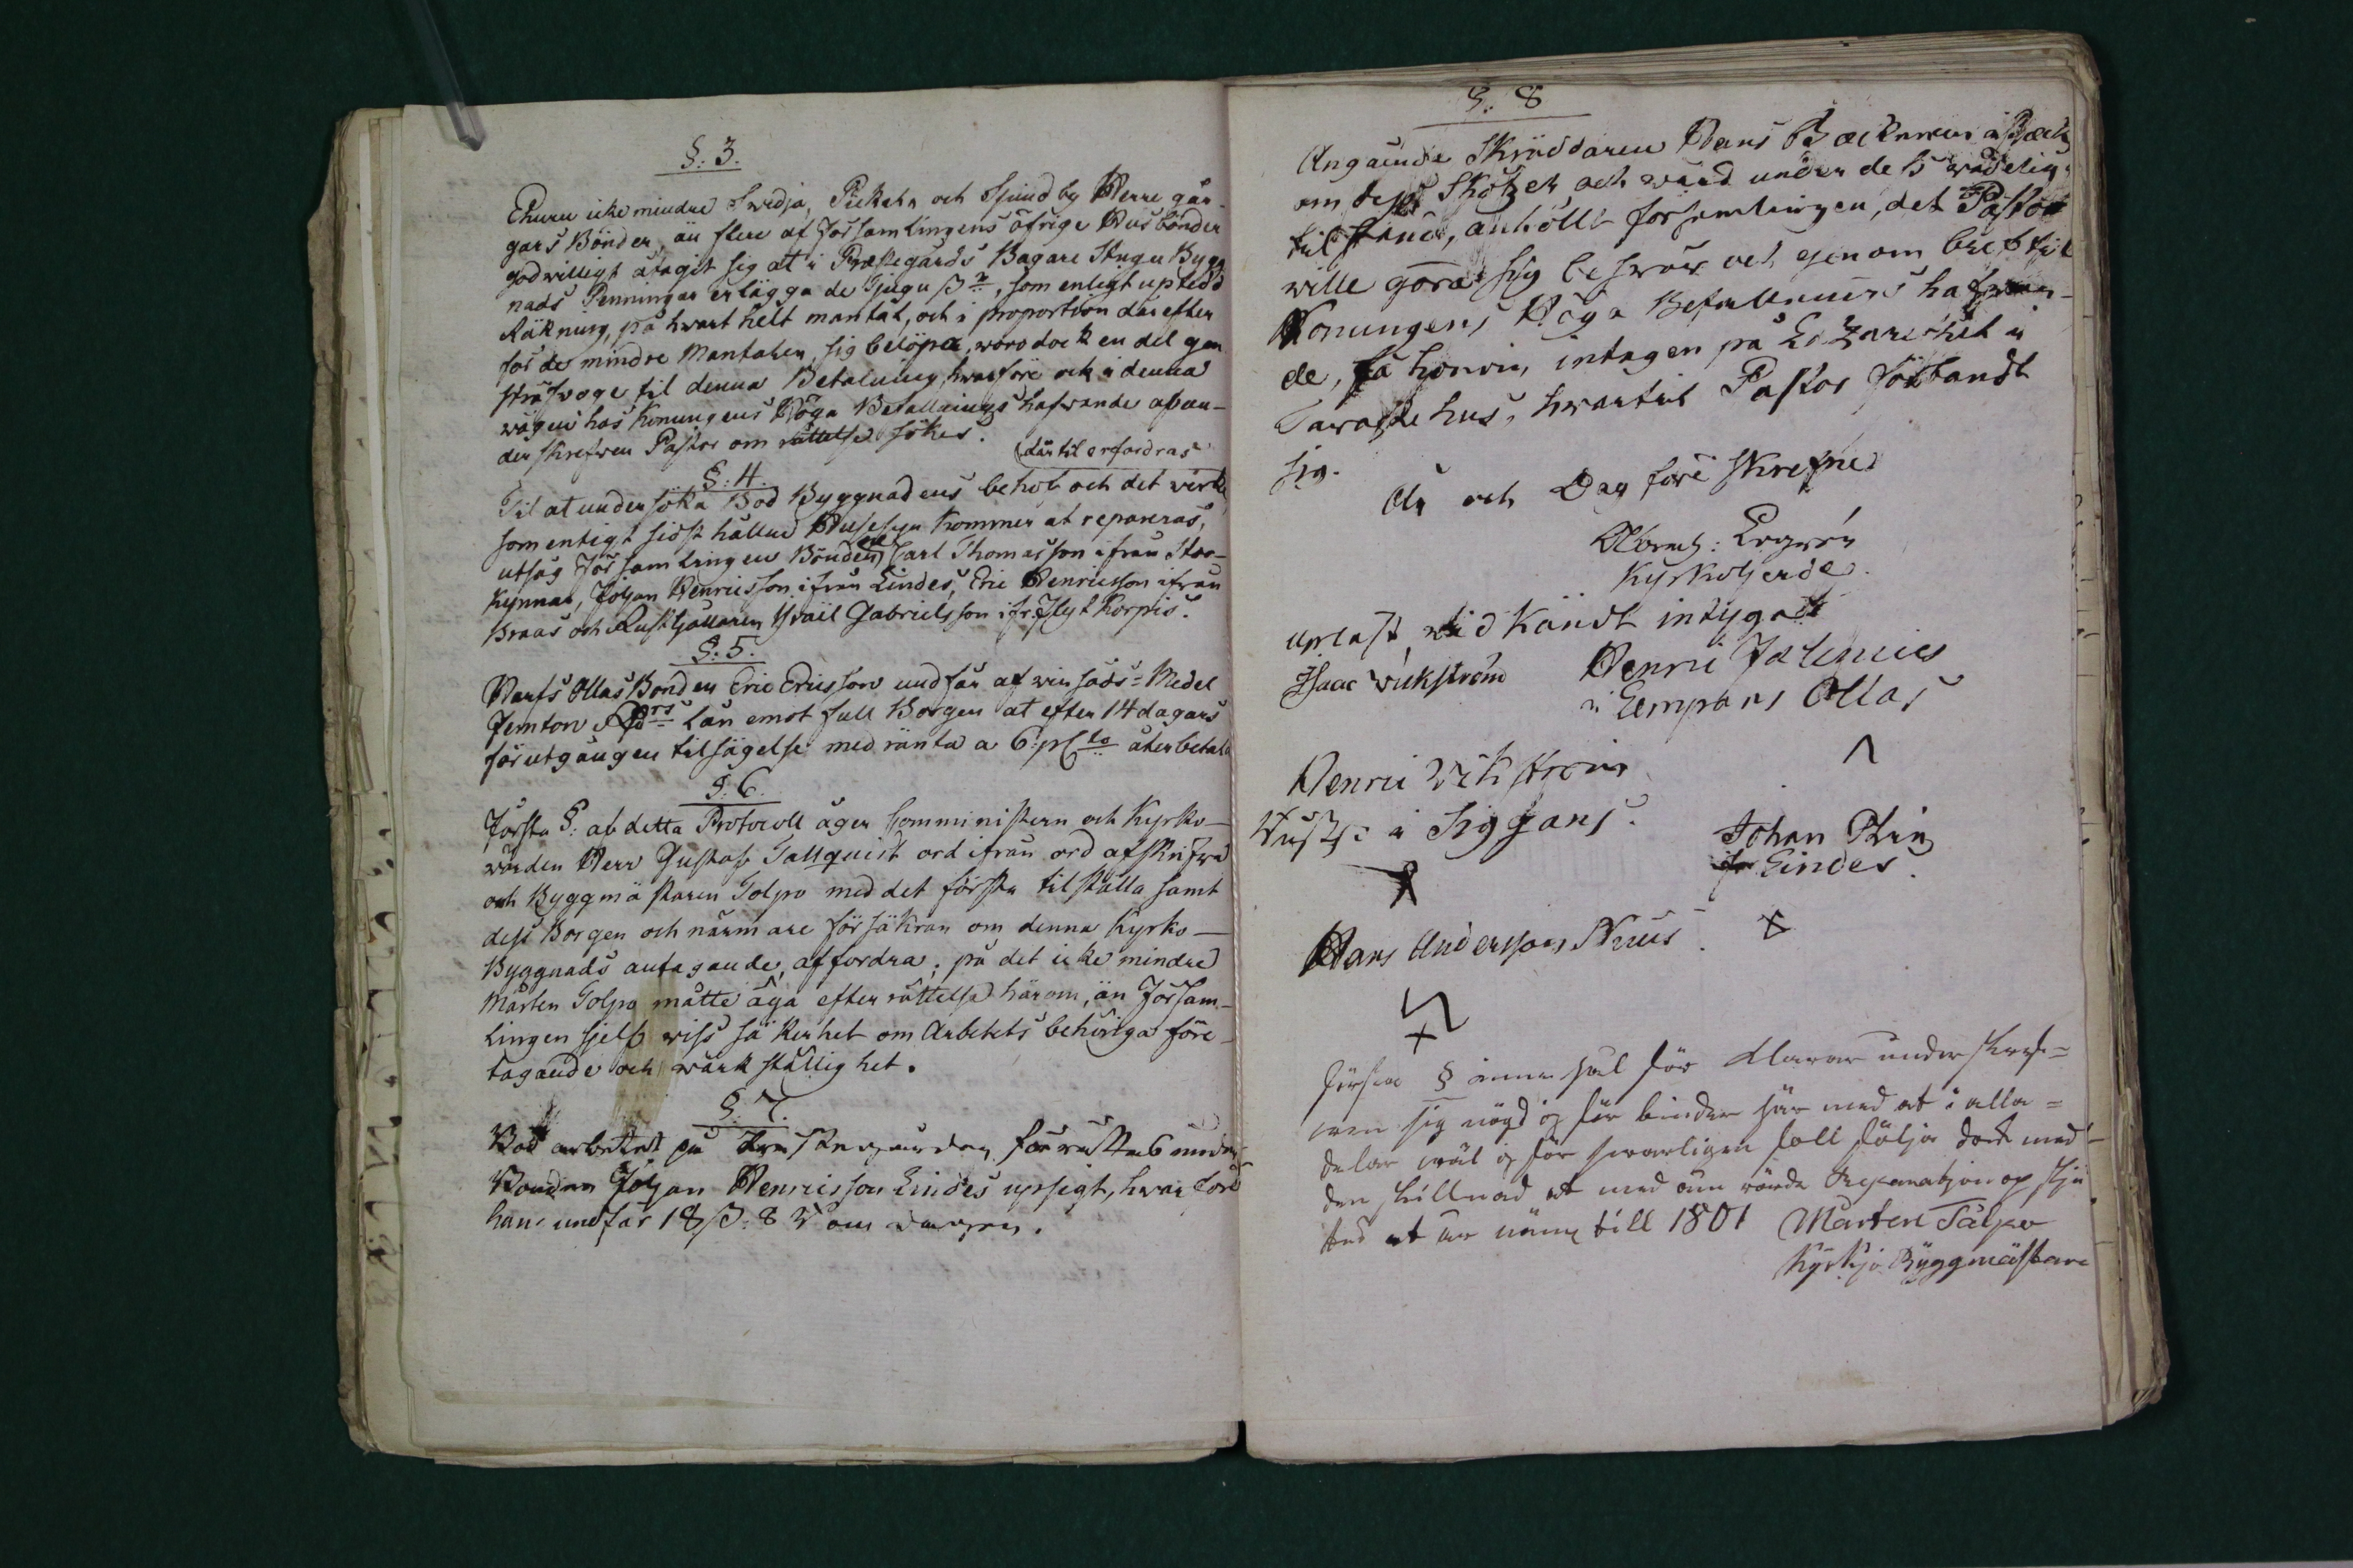 §: 3.
Ehuru icke mindre Swidja, Pickala och Sjundby Herre går-
gars Bönder, än flere af Församlingens öfrige Husbönder
godwilligt åtagit sig at i Prestegårds Bagare Stugu Bygg
nads Penningar erlägga de Tjugu ß, som enligt upledd
Räkning, på hwart helt mantal, och i proportion därefter
för de mindre Mantalen, sig belöpa, woro dock en del gen
sträfwoge til denna Betalning, hwarföre ock i denna
wägen hos Konungens Höga Befallnings hafwande af un-
der skrefwen Pastor om rättelse sökes.
(därtil erfordras
§: 4.
Til at undersöka Bod Byggnadens behof och det wirke
som enligt sidst hållne Husesyn kommer at repareras,
utsåg Församlingen Bönderne Carl Thomasson ifrån Stor-
Kynnar, Johan Henricsson ifrån Lindes, Eric Henricsson ifrån
Braas och Rusthållaren Israël Gabrielsson ifr. Flyt Korpis.
§: 5.
Hansollas Bonden Eric Ericsson undfår af winsåds-Medel
Femton Rdrs lån emot full Borgen at efter 14 dagars
förutgången tilsägelse med ränta a 6 pCto återbetala
§: 6.
Första §: af detta Protocoll äger Comministern och Kyrko-
wärden Herr Gustaf Tallquist ord ifrån ord afskrifwa
och Byggmästaren Tolpo med det första tilställa samt
dess Borgen och närmare försäkran om denna Kyrko-
Byggnads antagande, affordra; på det icke mindre
Mårten Tolpo måtte äga efterrättelse härom, än Försam-
lingen sjelf wiss säkerhet om Arbetets behöriga före-
tagande och wärkställighet.
§: 7.
Bod arbetet på Prestegården förrättas under
Bonden Johan Henricsson Lindes upsigt, hwarföre
han undfår 18 ß: 8 om dagen.
§. 8
Angående Skräddaren Hans Backman i Back
om dess Skötzel och wård under deß
tilstånd, anhöllt församlingen, det Pastor
wille göra sig beswär och genom bref til
Konungens Höga Befallnings hafwan-
de, få honom intagen på Lazarethet i
Tawastehus, hwartil Pastor förbandt
sig.
År och Dag före skrefne
Abrah:
Kyrkoherde.
Uplast, widkändt intygat
Isaac Wickström Henric
i Lempans Ollas
Henric Wikström
i Siggans.
Johan
ifr Lindes.
Hans Andersson
Första § innehål för Klarar under skref=
wen sig nögd og för binder här med at i alla=
delar wäl og för swarligen fall följa dock med-
den skillnad at med
at till 1801 Mårten Tålpo
Kyrkjo Byggmästare